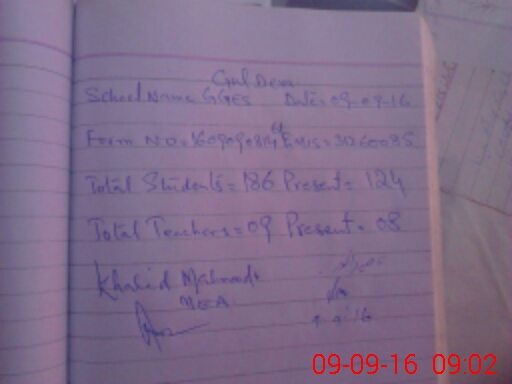 Gul Dera
School Name GGES Date: 09-09-16
Form No = EMIS = 31260085
Total Students = 186 Present = 124
Total Teachers = 09 Present = 08
Khalid Mahmood
MEA
09-09-16 09:02